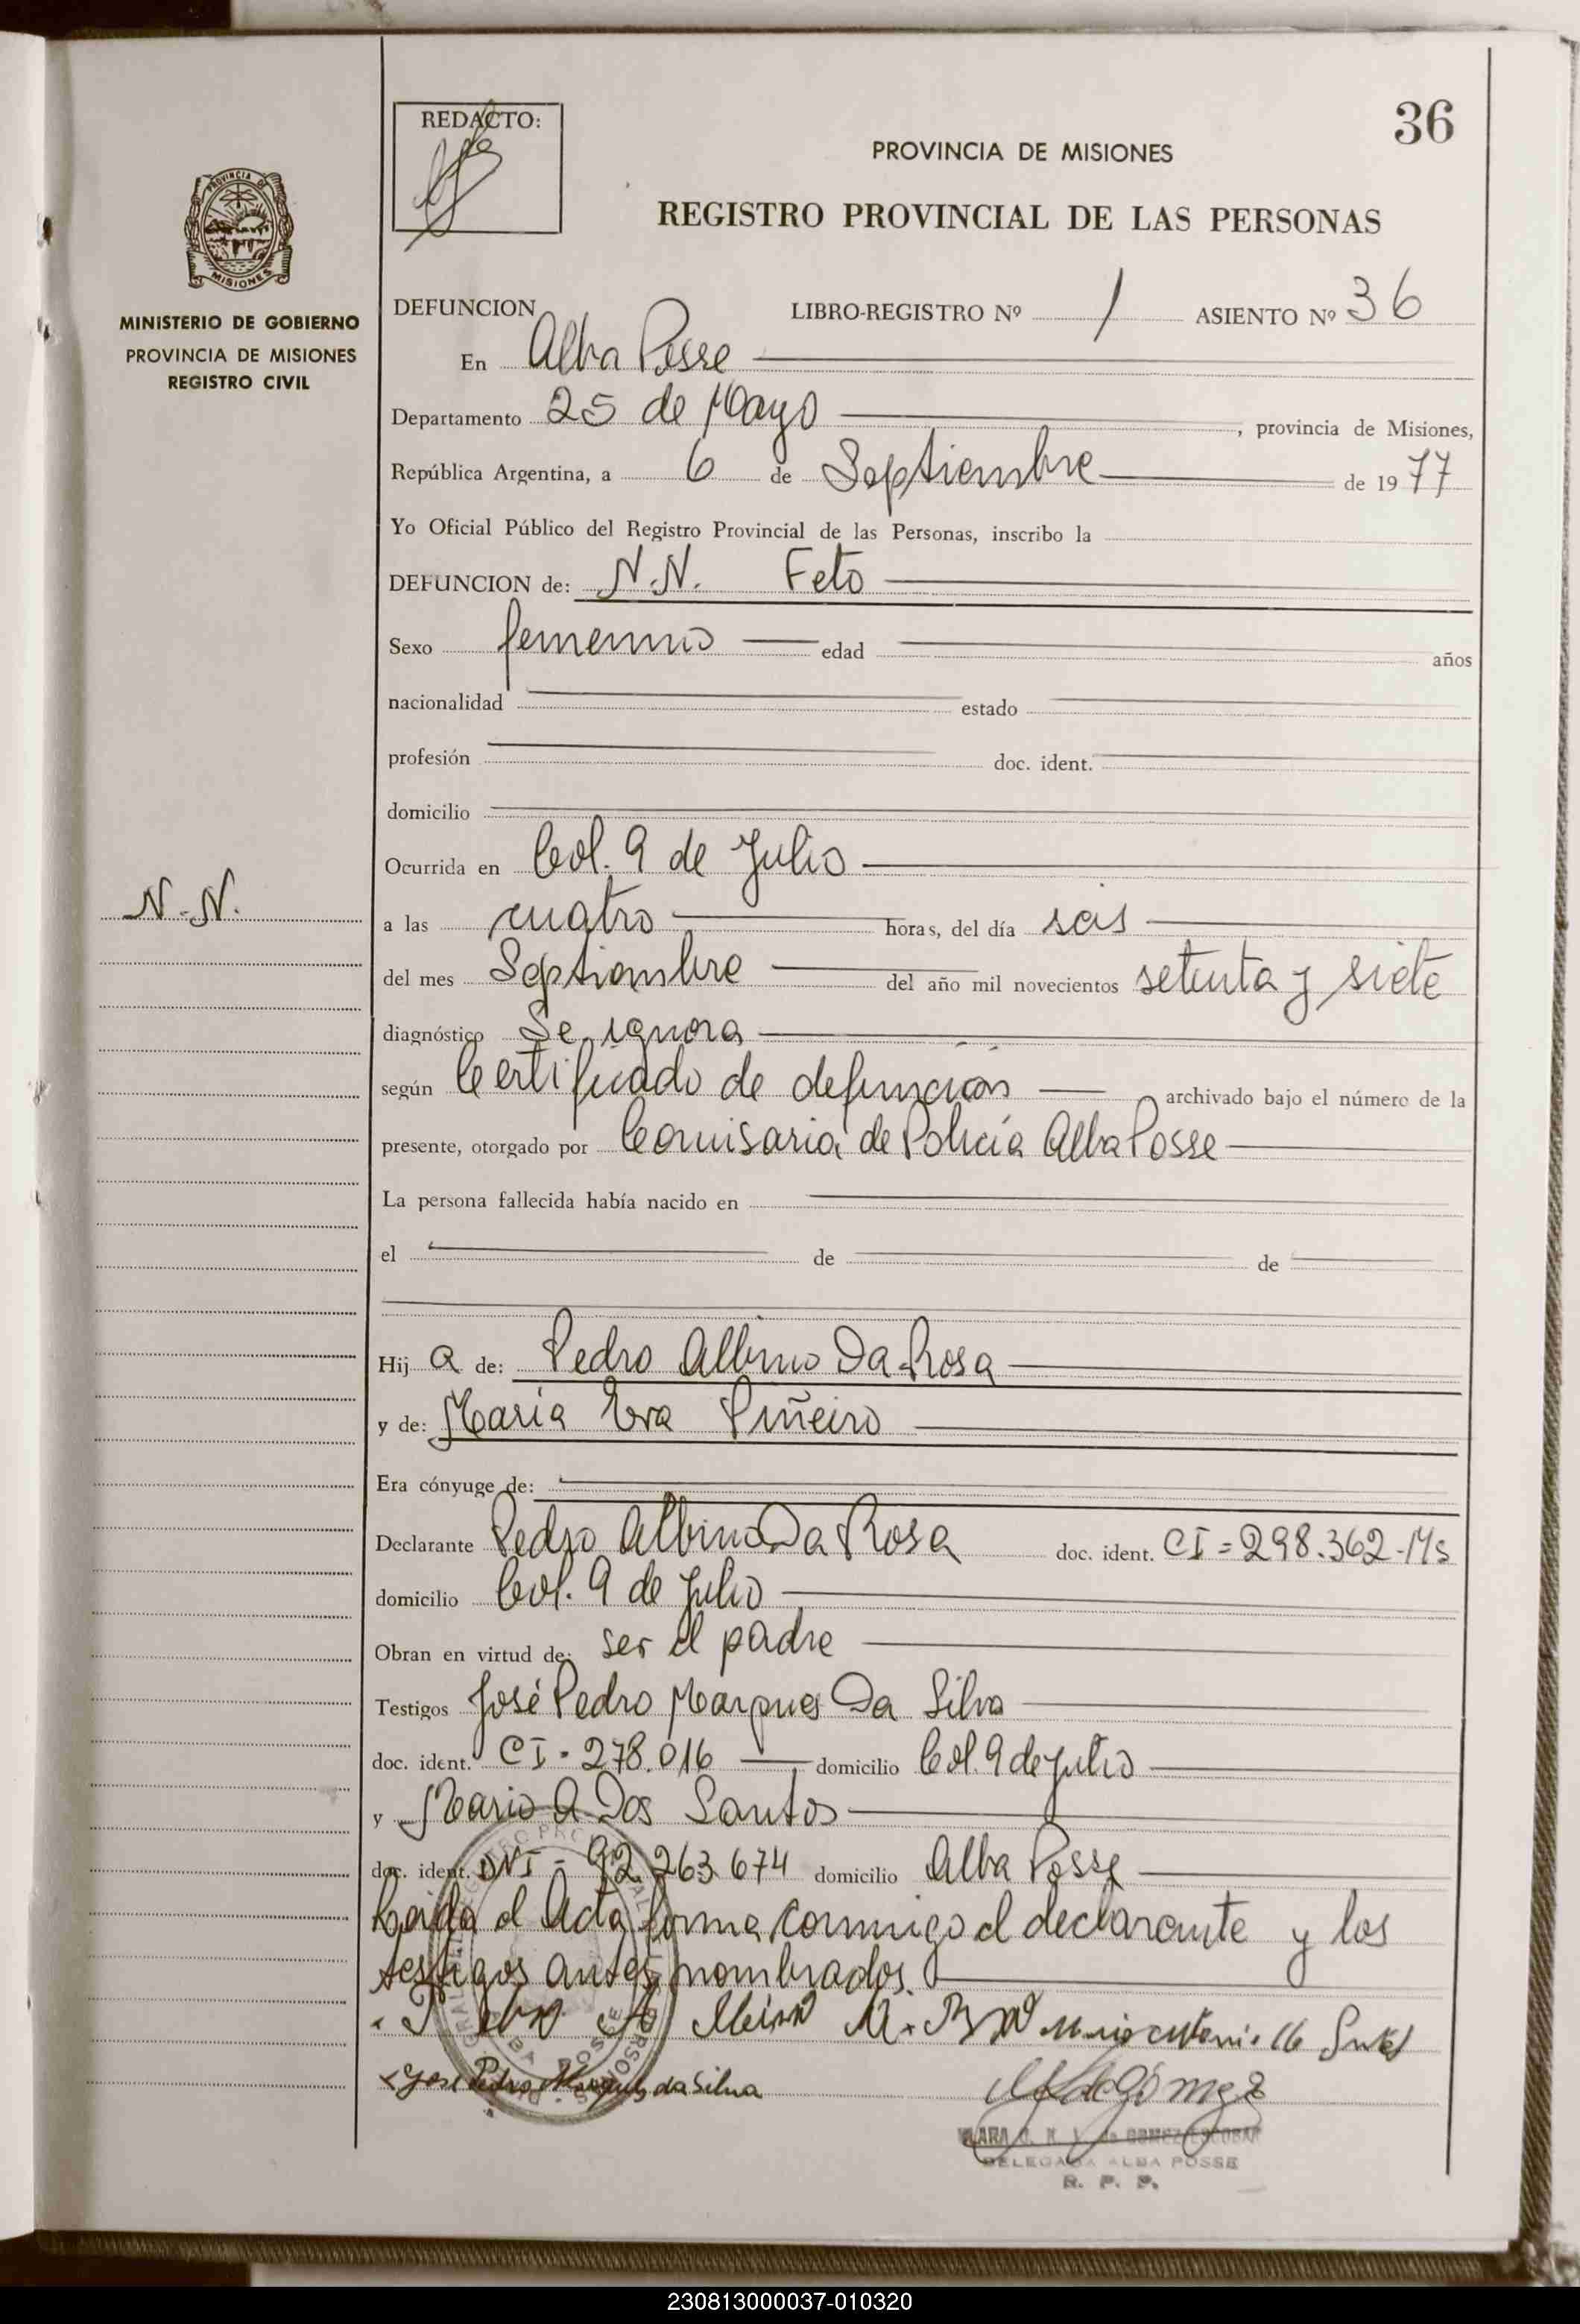 36
REDACTO:
PROVINCIA DE MISIONES
REGISTRO PROVINCIAL DE LAS PERSONAS
PROVINCIA DE
MISIONES
MINISTERIO DE GOBIERNO
PROVINCIA DE MISIONES
REGISTRO CIVIL
DEFUNCION LIBRO-REGISTRO Nº 1 ASIENTO Nº 36
En Alba Posse
Departamento 25 de Mayo, provincia de Misiones,
República Argentina, a 6 de Septiembre de 1977
Yo Oficial Público del Registro Provincial de las Personas, inscribo la
DEFUNCION de: N.N. Feto
Sexo femenino edad años
nacionalidad estado
profesión doc. ident.
domicilio
Ocurrida en Col. 9 de Julio
N.N.
a las cuatro horas, del día seis
del mes Septiembre del año mil novecientos setenta y siete
diagnóstico Se ignora
según Certificado de defunción archivado bajo el número de la
presente, otorgado por Comisaría de Policía Alba Posse
La persona fallecida había nacido en
el de de
Hij a de: Pedro Albino Da Rosa
y de: María Eva Piñeiro
Era cónyuge de:
Declarante Pedro Albino Da Rosa doc. ident. CI = 298.362-Ms
domicilio Col. 9 de Julio
Obran en virtud de: ser el padre
Testigos José Pedro Marques Da Silva
doc. ident. CI - 278.016 domicilio Col. 9 de Julio
y Mario A Dos Santos
doc. ident. DNI - 92.263.674 domicilio Alba Posse
Leída el Acta firma conmigo el declarante y los
testigos antes nombrados.
Jose Pedro Marques da Silva
de GOMEZ ESCOBAR
DELEGADA ALBA POSSE
R. P. P.
230813000037-010320